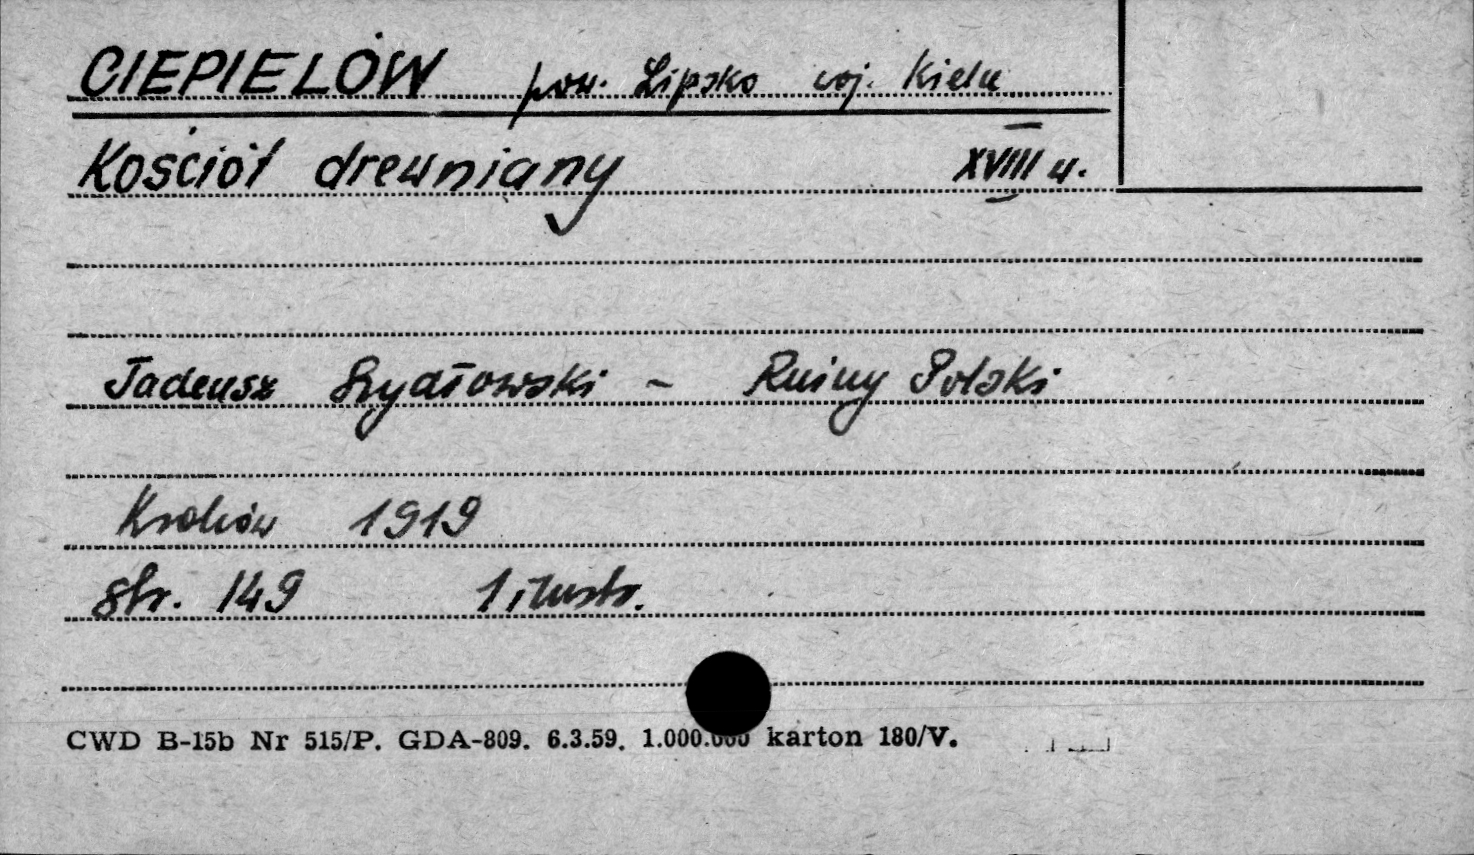 CIEPIELÓW pow. Lipsko woj. Kielce
Kościół drewniany XVIII w.
Tadeusz Szydłowski - Ruiny Polski
Kraków 1919
str. 149 1 ilustr.
CWD B-15b Nr 515/P. GDA-809. 6.3.59. 1.000.000 karton 180/V.